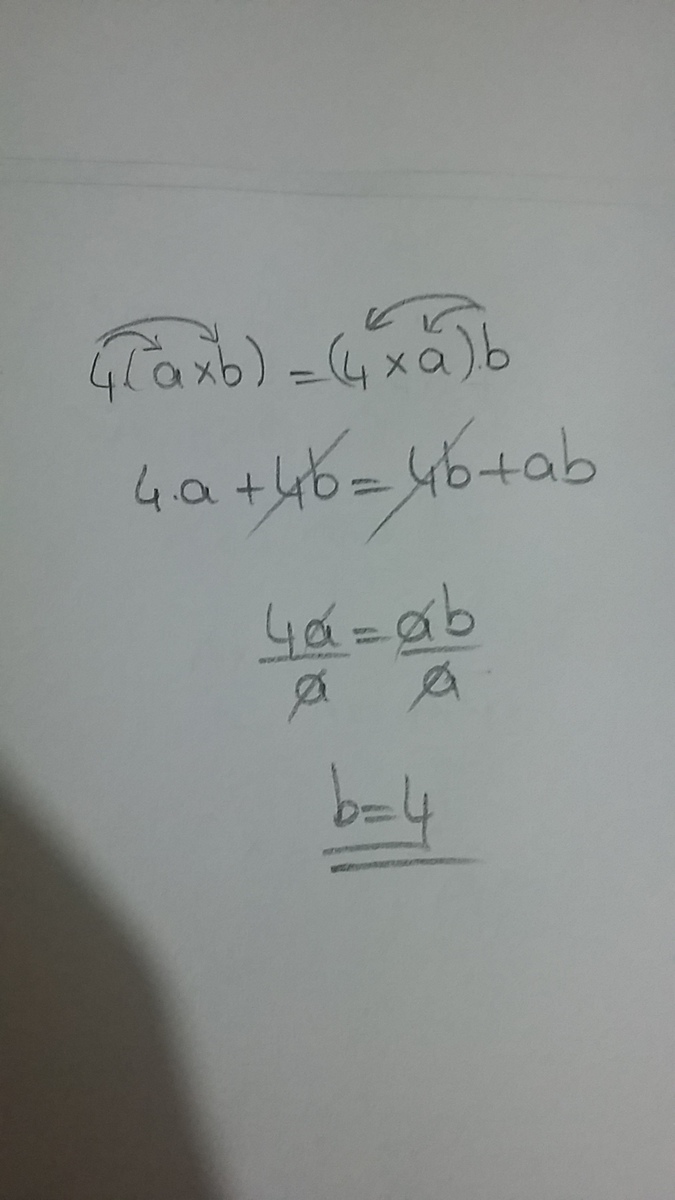 4(a×b) = (4×a).b
4.a + 4b = 4b + ab
4a/a = ab/a
b=4